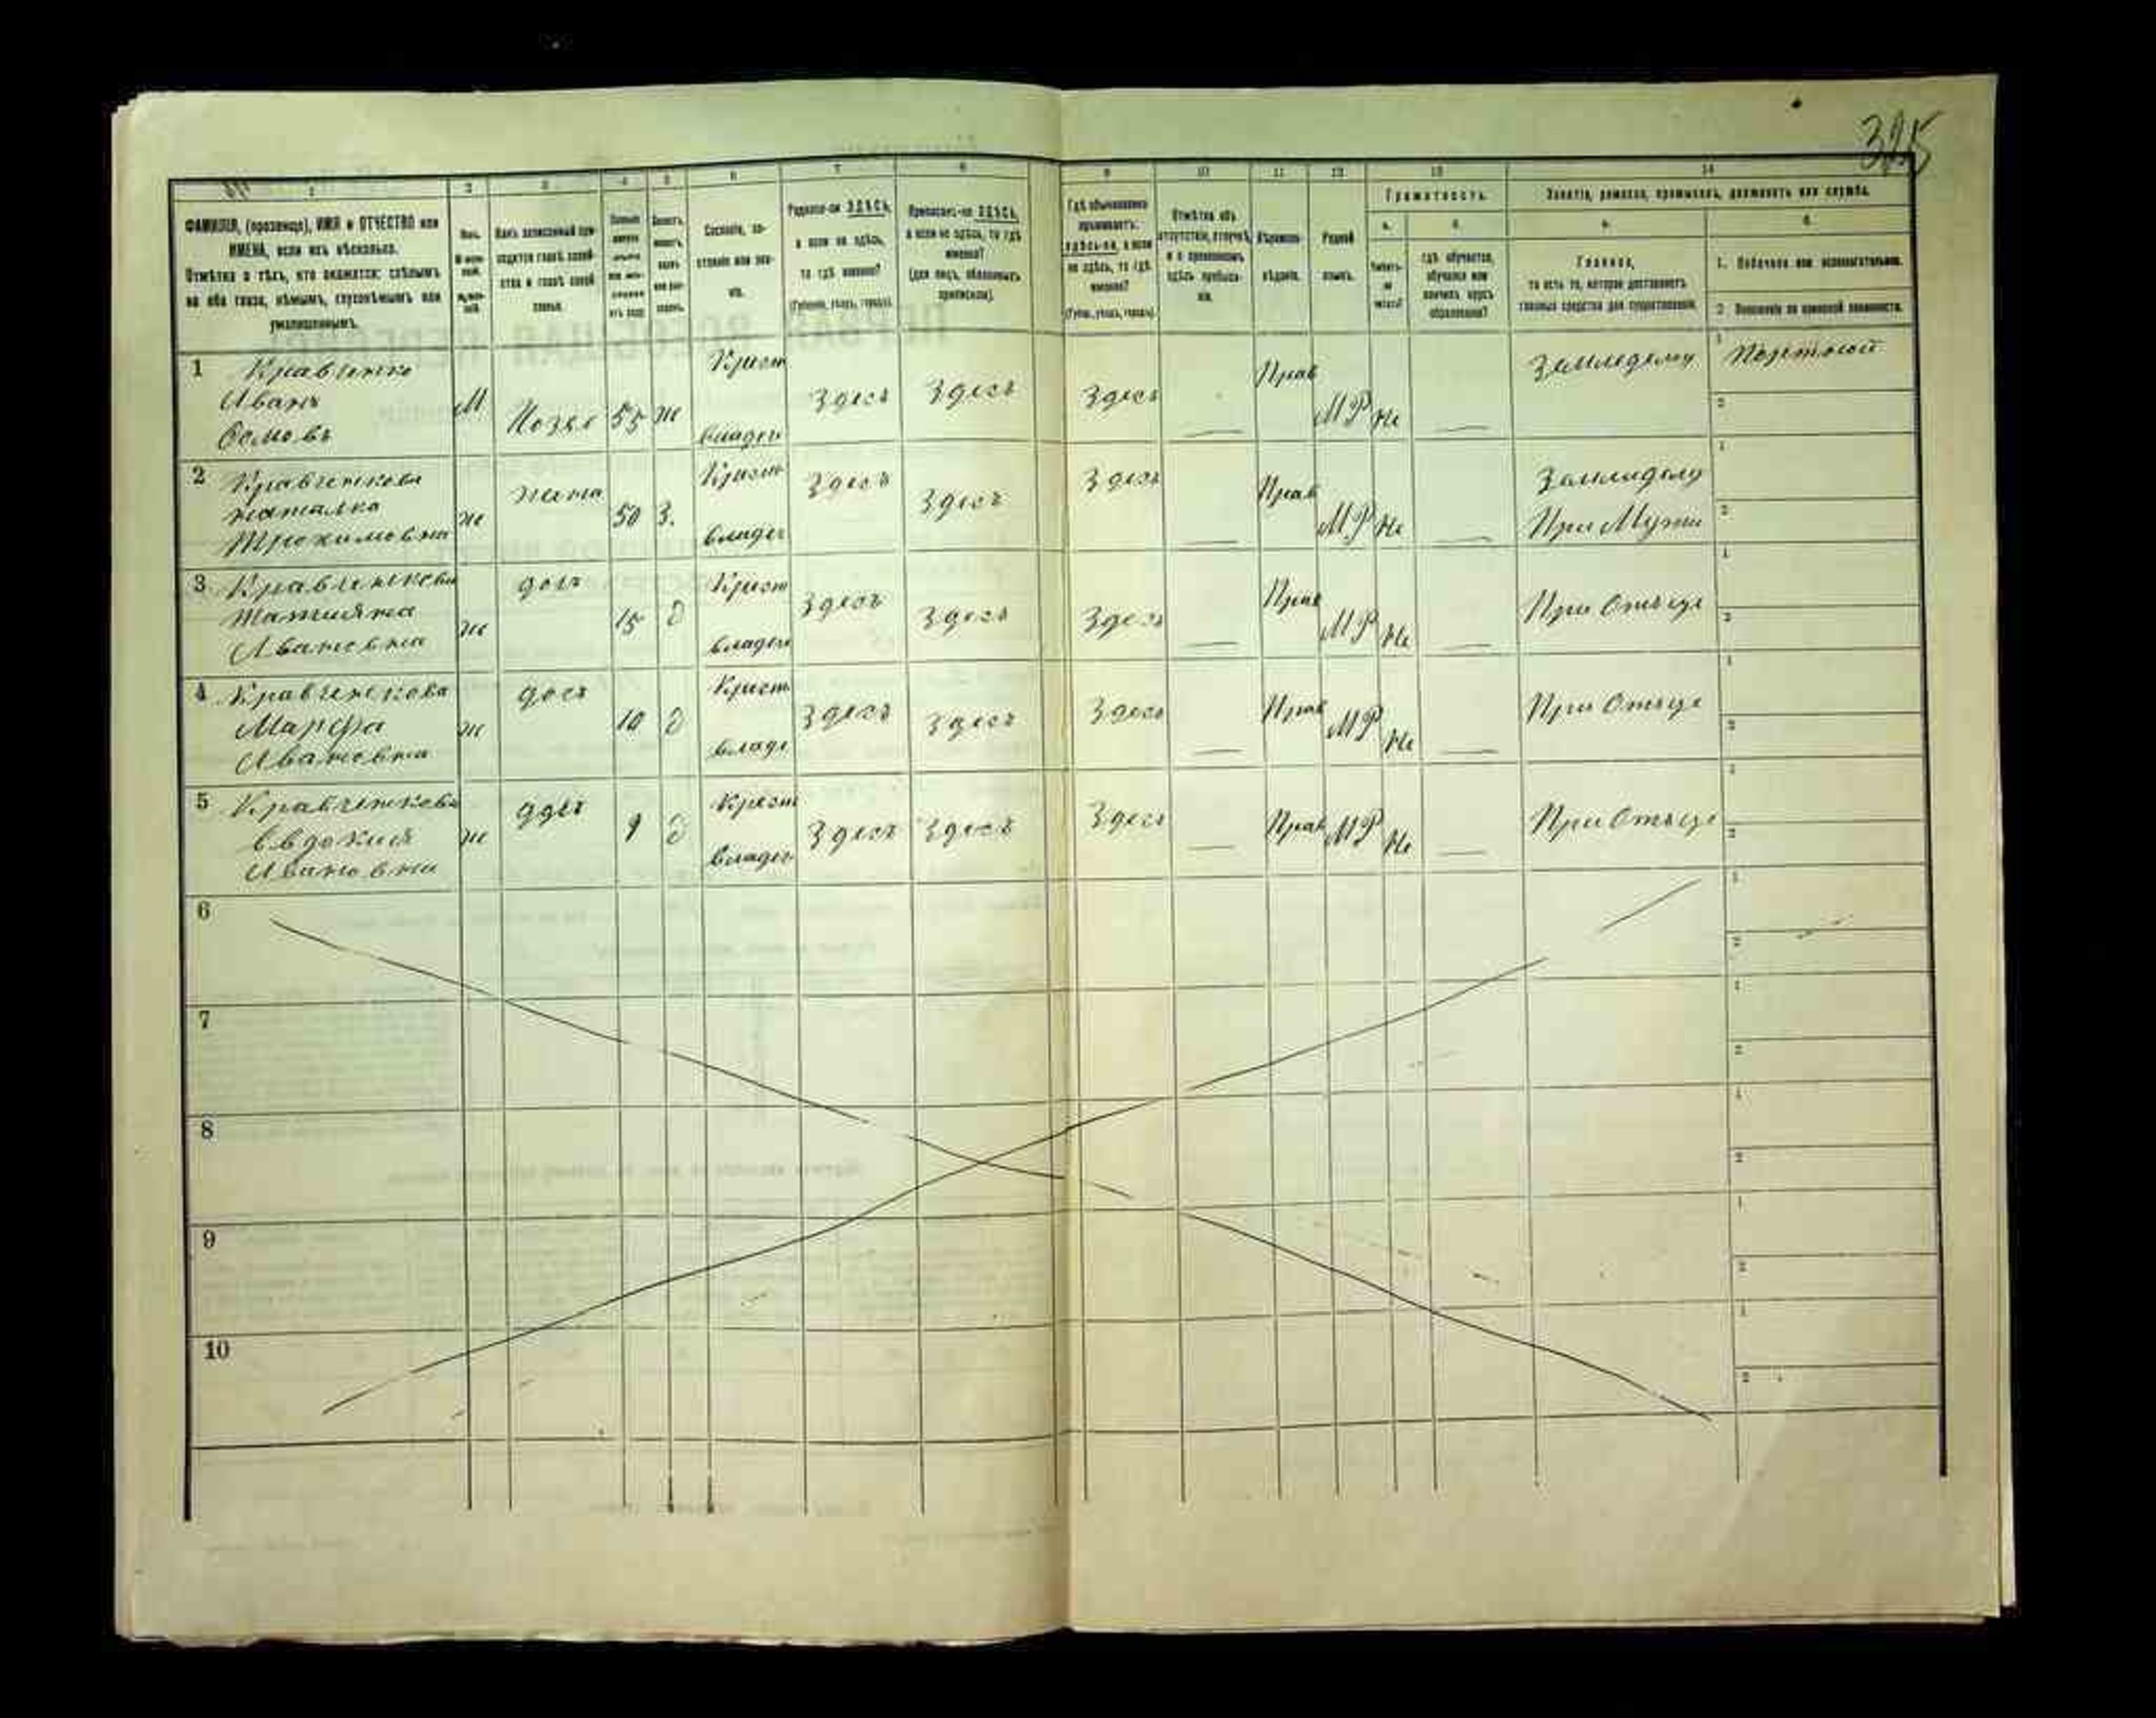 325
1 2 3 4 5 6 7 8 9 10 11 12 13 14
ФАМИЛІЯ, (прозвище), ИМЯ и ОТЧЕСТВО или
ИМЕНА, если ихъ нѣсколько.
Отмѣтка о тѣхъ, кто окажется: слѣпымъ
на оба глаза, нѣмымъ, глухонѣмымъ или
умалишеннымъ.
Полъ.
Какъ записанный при-
ходится главѣ хозяй-
ства и главѣ своей
семьи.
Сословіе, со-
стояніе или зва-
ніе.
Родился-ли ЗДѢСЬ,
а если не здѣсь,
то гдѣ именно?
(Губернія, уѣздъ, городъ).
Приписанъ-ли ЗДѢСЬ,
а если не здѣсь, то гдѣ
именно?
(для лицъ, обязанныхъ
припиской).
Гдѣ обыкновенно
проживаетъ:
здѣсь-ли, а если
не здѣсь, то гдѣ
именно?
(Губ., уѣздъ, городъ).
Отмѣтка объ
отсутствіи, отлучкѣ
и о временномъ
здѣсь пребыва-
ніи.
Вѣроиспо-
вѣданіе.
Родной
языкъ.
Грамотность.
а. б.
Умѣетъ-
ли
читать?
гдѣ обучается,
обучался или
кончилъ курсъ
образованія?
Занятіе, ремесло, промыселъ, должность или служба.
а. б.
Главное,
то есть то, которое доставляетъ
главныя средства для существованія.
1. Побочное или вспомогательное.
2. Положеніе по воинской повинности.
1 Кравченко
Иванъ
М Хозяе 55 ж Крест
владел
Здесъ Здесъ Здесъ — Прав МР Не — Земледелец Портной
2 Кравченкова
Наталка
Трохимовна
ж жена 50 З. Крест
владел
Здесъ Здесъ Здесъ — Прав МР Не — Земледелец
При Мужи
3 Кравченкова
Татияна
Ивановна
ж доч 15 д Крест
владел
Здесъ Здесъ Здесъ — Прав МР Не — При Отъце
4 Кравченкова
Марфа
Ивановна
ж доч 10 д Крест
владе
Здесъ Здесъ Здесъ — Прав МР Не — При Отъце
5 Кравченкова
Евдокия
Ивановна
ж 9 д Крест
владел
Здесъ Здесъ Здесъ — Прав МР Не — При Отъце
6
7
8
9
10